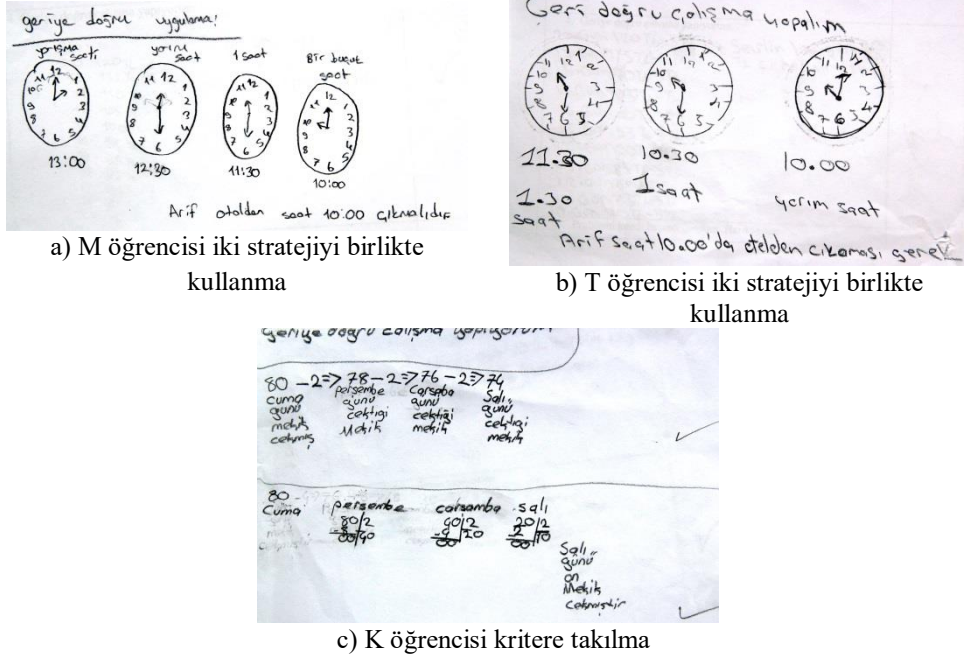 geriye doğru uygulama!
yarışma saati
yarım saat
1 saat
Bir buçuk saat
11 12 1 2 3 4 5 6 7 8 9 10
11 12 1 2 3 4 5 6 7 8 9 10
11 12 1 2 3 4 5 6 7 8 9 10
11 12 1 2 3 4 5 6 7 8 9 10
13:00
12:30
11:30
10:00
Arif otelden saat 10:00 çıkmalıdır
a) M öğrencisi iki stratejiyi birlikte
kullanma
Geri doğru çalışma yapalım
11.30
10.30
10.00
1.30 saat
1 saat
yarım saat
Arif saat 10.00'da otelden çıkması gerek
b) T öğrencisi iki stratejiyi birlikte
kullanma
geriye doğru çalışma yapıyorum
80 -2=> 78 -2=> 76 -2=> 74
cuma günü mekik çekmiş
perşembe günü çektiği mekik
Çarşaba günü çektiği mekik
Salı günü çektiği mekik
80
Cuma
perşembe
çarşamba
salı
80/2
40
20/2
20
2 10
00
Salı günü on mekik çekmiştir
c) K öğrencisi kritere takılma